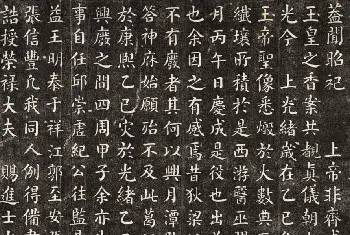 蓋聞昭祀 上帝非齊
玉皇之香案共覩真儀朝
光今 上光緒歲在乙巳
玉帝聖像悉燬於火數典
纖壤所積於是西游醫巫
月丙午日慶成是役也出
也余因之有感焉昔狄梁
不有廢者其何以興月
答神庥始願殆不及此萬
於康熙乙巳灾於光緒乙
興廢之間四周甲子余亦
事自任邱崇虞紀公往監
益王明奉于祥江郭至安
張信豐凢我同人例得備
誥授榮祿大夫 賜進士